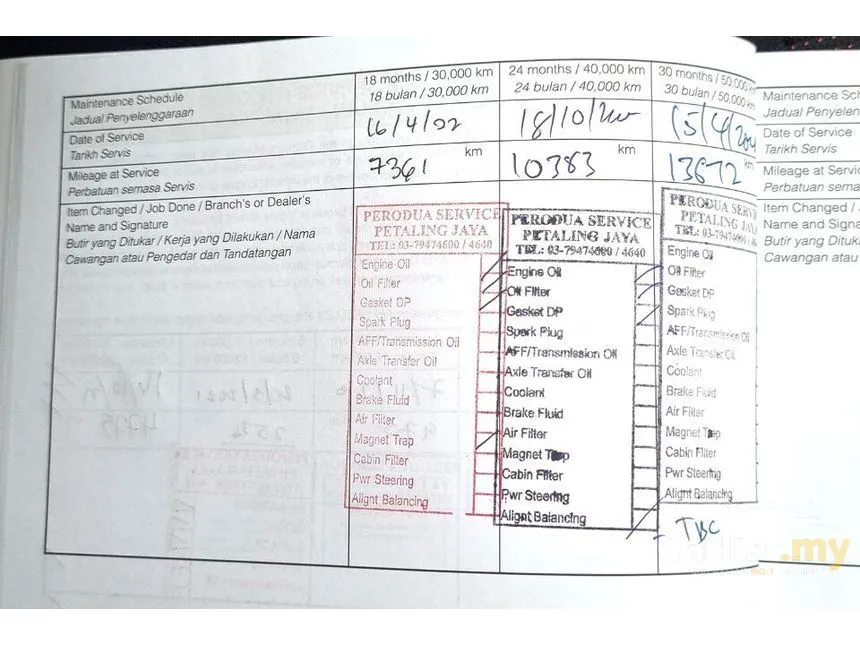 Maintenance Schedule
Jadual Penyelenggaraan
18 months / 30,000 km
18 bulan / 30,000 km
24 months / 40,000 km
24 bulan / 40,000 km
30 months / 50,000 km
30 bulan / 50,000 km
Date of Service
Tarikh Servis
16/4/22
18/10/
15/4/
Mileage at Service
Perbatuan semasa Servis
7361 km
10383 km
13672 km
Item Changed / Job Done / Branch's or Dealer's
Name and Signature
Butir yang Ditukar / Kerja yang Dilakukan / Nama
Cawangan atau Pengedar dan Tandatangan
PERODUA SERVICE
PETALING JAYA
TEL: 03-79474600 / 4640
Engine Oil
Oil Filter
Gasket DP
Spark Plug
AFF/Transmission Oil
Axle Transfer Oil
Coolant
Brake Fluid
Air Filter
Magnet Trap
Cabin Filter
Pwr Steering
Alignt Balancing
PERODUA SERVICE
PETALING JAYA
TEL: 03-79474600 / 4640
Engine Oil
Oil Filter
Gasket DP
Spark Plug
AFF/Transmission Oil
Axle Transfer Oil
Coolant
Brake Fluid
Air Filter
Magnet Trap
Cabin Filter
Pwr Steering
Alignt Balancing
PERODUA SERV
PETALING JA
TEL: 03-79474600 / 4
Engine Oil
Oil Filter
Gasket DP
Spark Plug
AFF/Transmission Oil
Axle Transfer Oil
Coolant
Brake Fluid
Air Filter
Magnet Trap
Cabin Filter
Pwr Steering
Alignt Balancing
- TBC
Maintenance Sch
Jadual Penyele
Date of Service
Tarikh Servis
Mileage at Servi
Perbatuan sema
Item Changed /
Name and Signa
Butir yang Ditu
Cawangan atau
.my